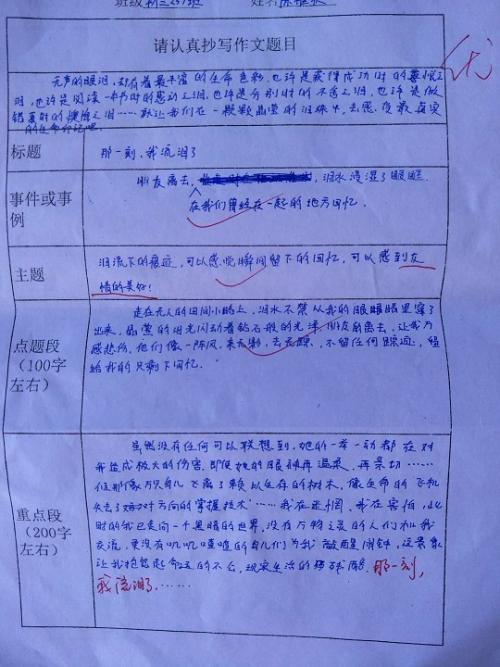 班级 初三 班 姓名
请认真抄写作文题目
优
无声的眼泪,却有着最丰富的生命色彩,也许是获得成功时的喜悦之
泪,也许是阅读一本书时的感动之泪,也许是分别时的不舍之泪,也许是做
错事时的悔恨之泪……就让我们在一颗颗晶莹的泪珠中,去感 最真实
的生命印记吧。
标题
那一刻,我流泪了
事件或事
例
朋友离去, ,泪水浸湿了眼眶.
在我们曾经在一起的地方回忆.
主题
泪流下的痕迹,可以感觉瞬间留下的回忆,可以感到友
情的美好!
点题段
(100字
左右)
走在无人的田间小路上,泪水不禁从我的眼睛里穿了
出来,晶莹的泪光闪动着钻石般的光泽,朋友的离去,让我万
感悲伤,他们像一阵风,来无影,去无踪,不留任何踪迹,留
给我的只剩下回忆.
重点段
(200字
左右)
虽然没有任何可以联想到,她的一举一动都在对
我造成极大的伤害.即使她的眼神再温柔,再亲切……
但那像万只鸟儿飞离了赖以生存的树木,像生命的飞机
失去了 对方向的掌握技术……我在迷惘,我在害怕,此
时的我已走向一个黑暗的世界,没有万物之灵的人们和我
交流,更没有叽叽喳喳的鸟儿们为我敲醒闹钟,这景象
让我抱怨起命运的不公,现实生活的残酷.那一刻,
我流泪了……